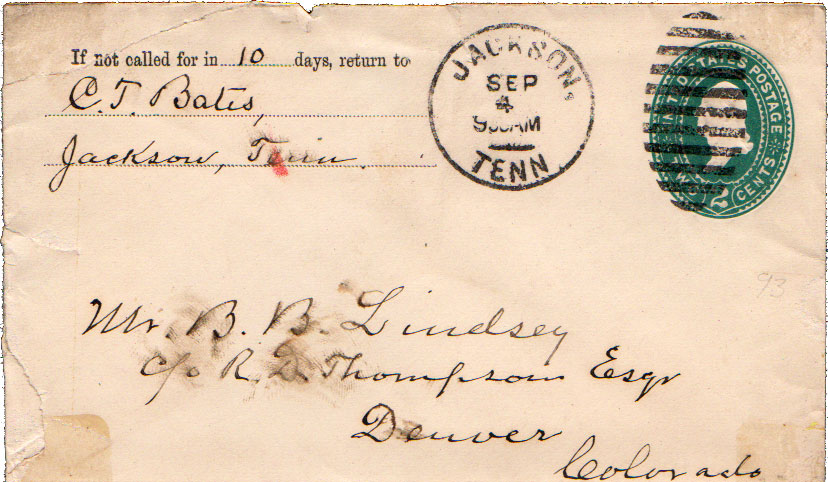 If not called for in 10 days, return to
C. T. Bates,
Jackson, Tenn.
JACKSON,
SEP
4
AM
TENN
UNITED STATES POSTAGE
2 CENTS
93
Mr. B. B. Lindsey
c/o R. D. Thompson Esqr
Denver
Colorado